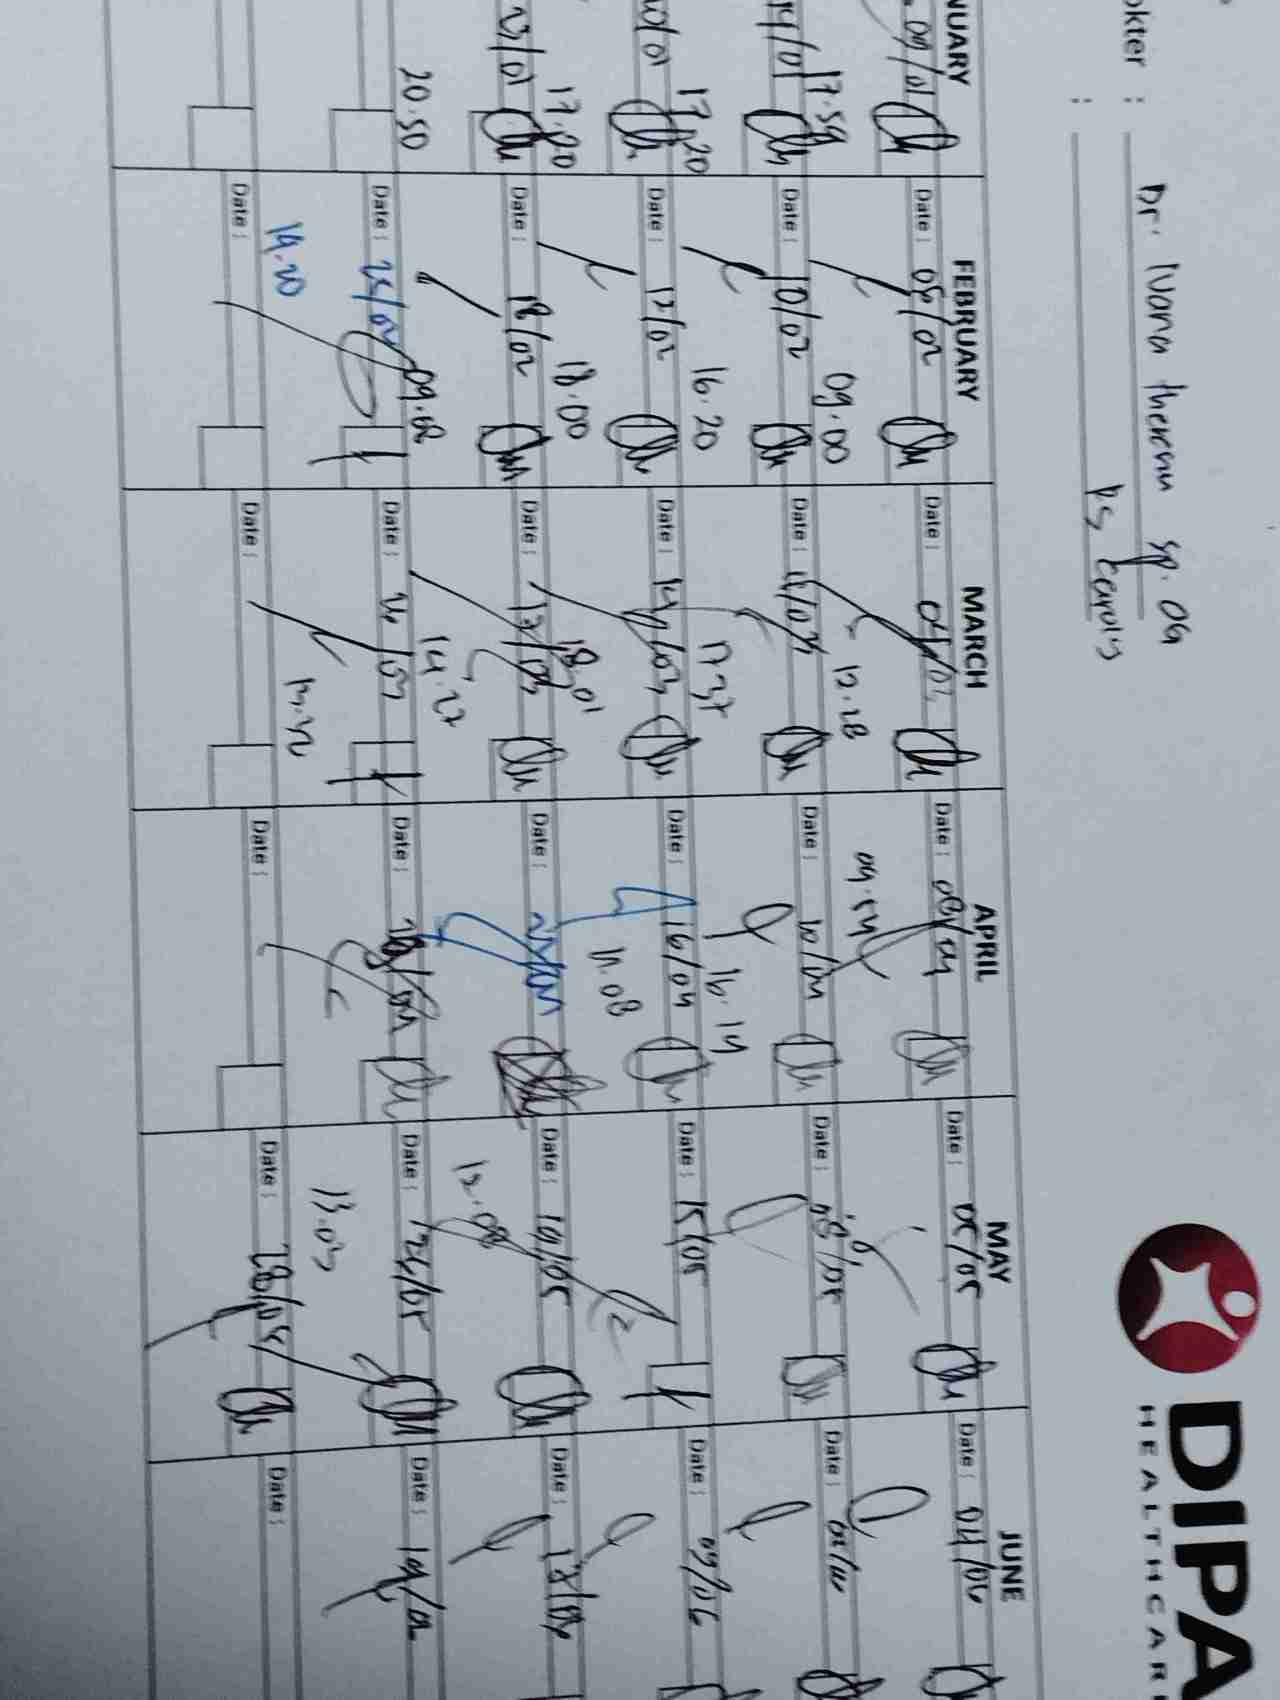 DIPA
HEALTHCAR
okter : Dr. Ivana theresia sp. OG
: RS Carolus
NUARY FEBRUARY MARCH APRIL MAY JUNE
09/01 Date : 05/02 Date : 04/03 Date : 08/04 Date : 05/05 Date : 04/06
17.59 09.00 12.28 09.54
14/01 Date : 10/02 Date : 11/03 Date : 10/04 Date : 08/05 Date :
17.20 16.20 17.37 16.14
20/01 Date : 12/02 Date : 14/03 Date : 16/04 Date : 15/05 Date : 09/06
17.20 18.00 18.01 11.08
23/01 Date : 18/02 Date : 17/03 Date : Date : 19/05 Date :
20.50 14.27 12.08
Date : 25/02 Date : Date : Date : Date :
14.20 13.03
Date : Date : Date : Date : 28/05 Date :